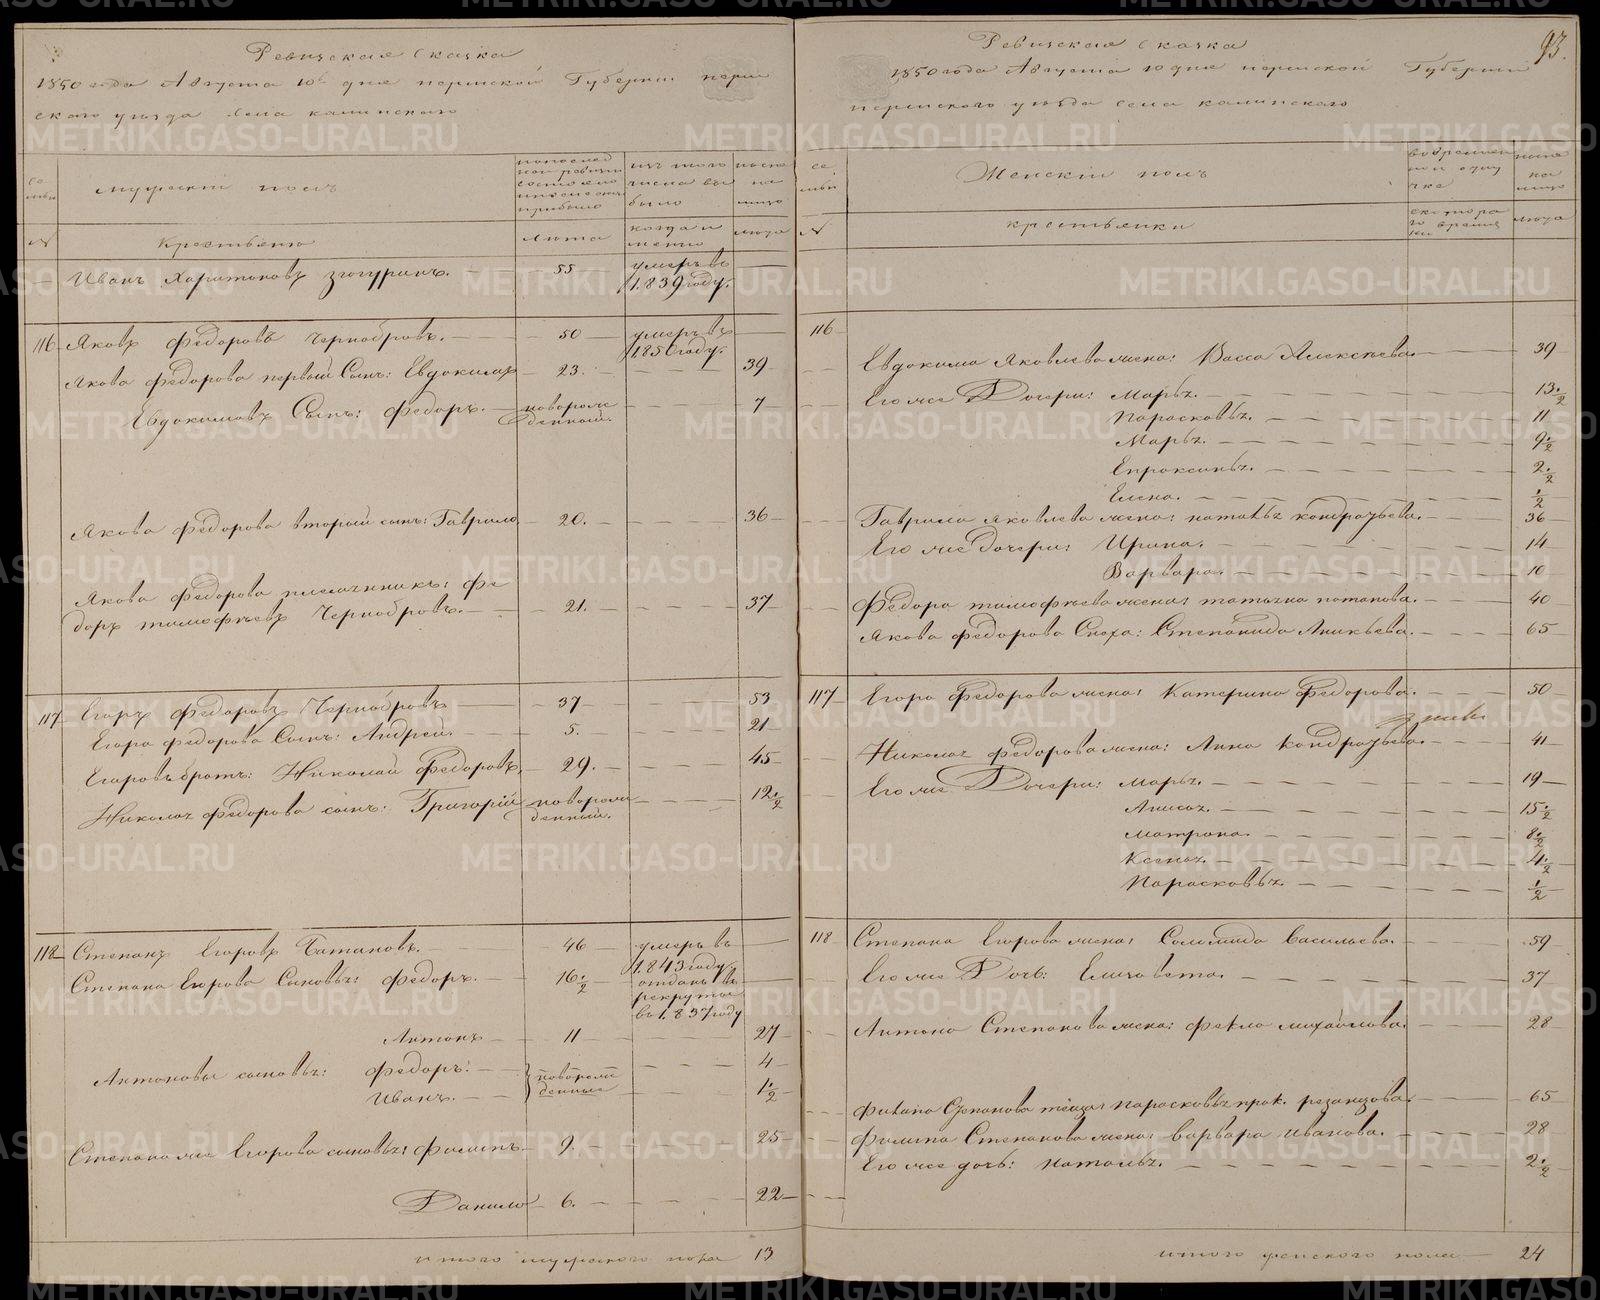 Ревизская Сказка
1850 года Августа 10го дня пермской Губернии перм
ского уезда села калинского
се
мьи
мужской полъ
по послед
ней ревизии
состояло
и после она
прибыло
изъ того
числа вы
было
ныне
на
лицо
№
Крестьяне
лета
когда и
менно
лета
Иванъ Харитоновъ Зюгуринъ. 55 умеръ въ
1839 году.
116 Яковъ Федоровъ Чернобровъ. 50 умеръ въ
1850 году.
Якова Федорова первый Сынъ: Евдокимъ 23. 39
Евдокимовъ Сынъ: Федоръ. новорож
денный. 7
Якова Федорова второй сынъ: Гаврило 20. 36
Якова Федорова племянникъ: Фе
доръ тимофеевъ Чернобровъ. 21. 37
117 Егоръ Федоровъ Чернобровъ 37 53
Егора Федорова Сынъ: Андрей. 5. 21
Егоровъ братъ: Николай Федоровъ. 29. 45
Николая Федорова сынъ: Григорий новорож
денный. 12 1/2
118 Степанъ Егоровъ Батановъ. 46 умеръ въ
1843 году.
Степана Егорова Сыновья: Федоръ. 16 1/2 отданъ въ
рекруты
въ 1837 году
Антонъ 11 27
Антоновы сыновья: Федоръ. новорож
денные 4
Иванъ. 1 1/2
Степана же Егорова сыновья: Филипъ 9. 25
Данило 6. 22
итого мужского пола 13
93.
Ревизская Сказка
1850 года Августа 10 дня пермской Губернии
пермского уезда села калинского
се
мьи
Женский полъ
во времен
ной отлу
чке
ныне
на
лицо
№
крестьянки
съ котора
го
времени
лета
116
Евдокима Яковлева жена: Васса Алексеева. 39
Его же Дочери: Марья. 13 1/2
Парасковья. 11
Марья. 9 1/2
Епроксинья. 2 1/2
Елена. 1/2
Гаврила Яковлева жена: наталья кондратьева. 36
Его же дочери: Ирина. 14
Варвара. 10
Федора тимофеева жена: татьяна потапова. 40
Якова Федорова Сноха: Степанида Аникьева. 65
117 Егора Федорова жена: Катерина Федорова. 50
Николая Федорова жена: Анна Кондратьева. 41
Его же Дочери: Марья. 19
Анисья. 15 1/2
Матрона. 8 1/2
Ксенья. 4 1/2
Парасковья. 1/2
118 Степана Егорова жена: Соломида Васильева. 59
Его же Дочь: Елизавета. 37
Антона Степанова жена: Фекла михайлова. 28
Филипа Степанова теща: Парасковья прок. резанцова. 65
Филипа Степанова жена: Варвара Иванова. 28
Его же дочь: Наталья. 2 1/2
итого женского пола 24
METRIKI.GASO-URAL.RU